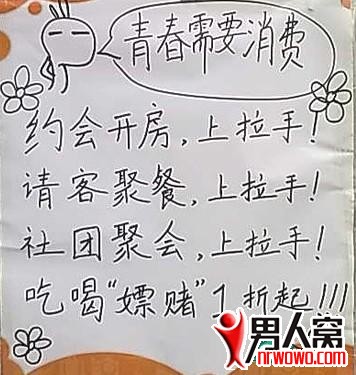 青春需要消费
约会开房,上拉手!
请客聚餐,上拉手!
社团聚会,上拉手!
吃喝“嫖赌”1折起!!!
男人窝
nrwowo.com